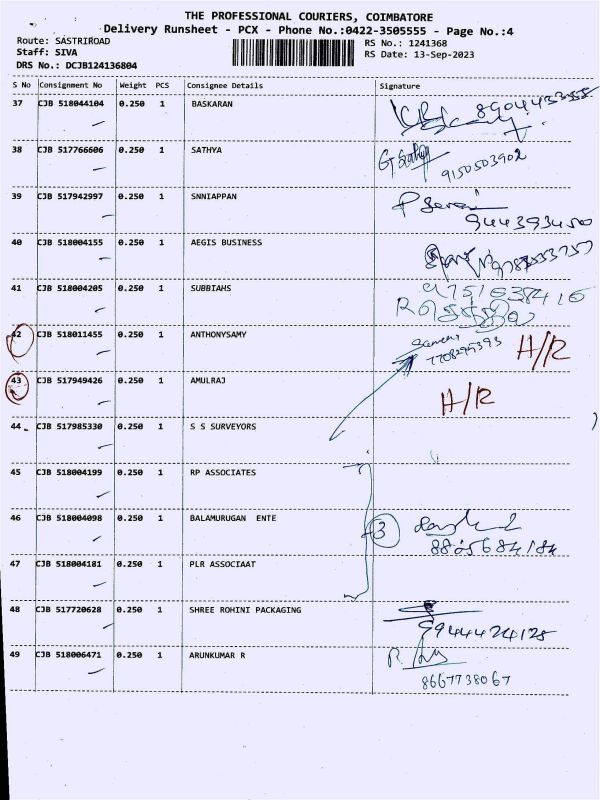 THE PROFESSIONAL COURIERS, COIMBATORE
Delivery Runsheet - PCX - Phone No.:0422-3505555 - Page No.:4
Route: SASTRIROAD
RS No.: 1241368
Staff: SIVA
RS Date: 13-Sep-2023
DRS No.: DCJB124136804
S No Consignment No Weight PCS Consignee Details Signature
37 CJB 518044104 0.250 1 BASKARAN
38 CJB 517766606 0.250 1 SATHYA
9150503902
39 CJB 517942997 0.250 1 SNNIAPPAN
9443934500
40 CJB 518004155 0.250 1 AEGIS BUSINESS
41 CJB 518004205 0.250 1 SUBBIAHS
9751638416
42 CJB 518011455 0.250 1 ANTHONYSAMY H/R
43 CJB 517949426 0.250 1 AMULRAJ
H/R
44 CJB 517985330 0.250 1 S S SURVEYORS
45 CJB 518004199 0.250 1 RP ASSOCIATES
46 CJB 518004098 0.250 1 BALAMURUGAN ENTE
3
8805684184
47 CJB 518004181 0.250 1 PLR ASSOCIAAT
48 CJB 517720628 0.250 1 SHREE ROHINI PACKAGING
9944424128
49 CJB 518006471 0.250 1 ARUNKUMAR R
8667738067